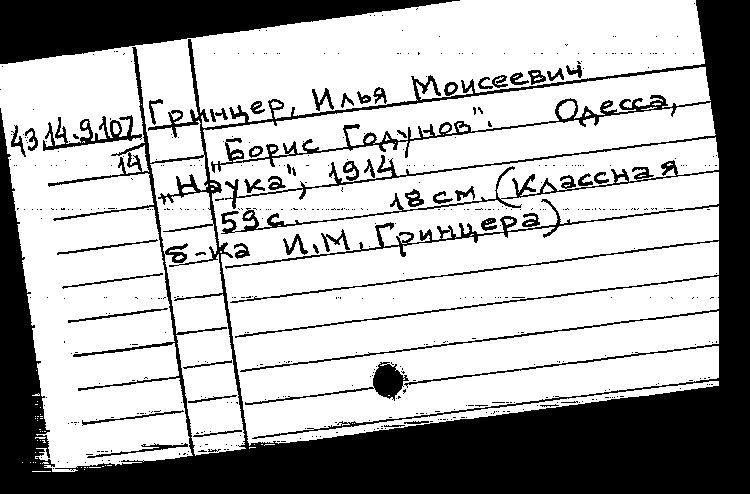 Гринцер, Илья Моисеевич
43.14.9.107
14
„Борис Годунов". Одесса,
„Наука", 1914.
59 с. 18 см. (Классная
б-ка И.М. Гринцера).